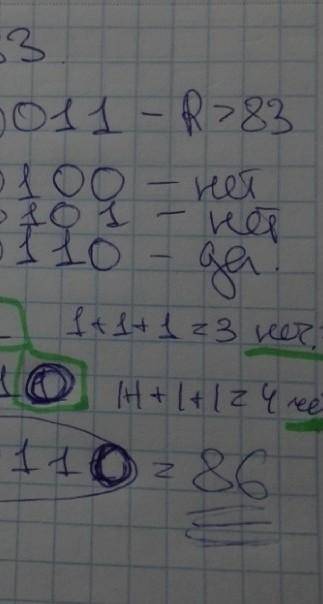 83
0011 - R > 83
0100 - нет
0101 - нет
0110 - да.
1+1+1=3 нет.
10 1+1+1+1=4 че
110 = 86